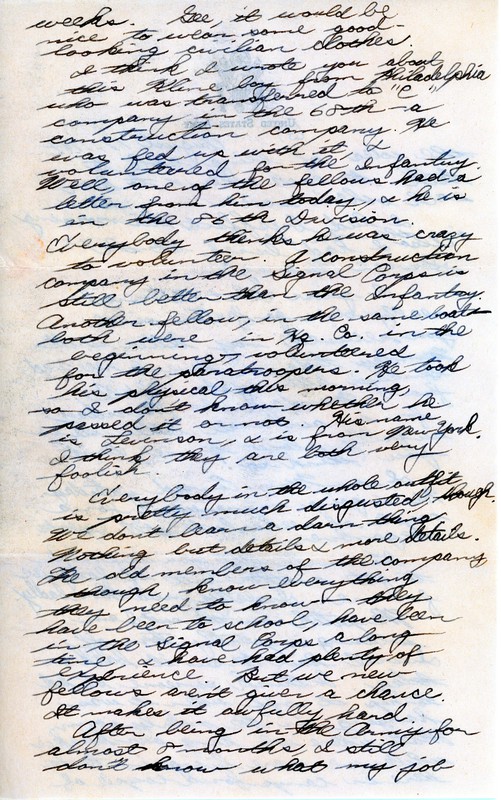 weeks. Gee, it would be
nice to wear some good-
looking civilian clothes.
I think I wrote you about
this Kline boy from Philadelphia
who was transferred to "C"
company in the 68th - a
construction company. He
was fed up with it, &
volunteered for the Infantry.
Well, one of the fellows had a
letter from him today, & he is
in the 86th Division.
Everybody thinks he was crazy
to volunteer. A construction
company in the Signal Corps is
still better than the Infantry.
Another fellow, in the same boat -
both were in Hq. Co. in the
beginning, volunteered
for the paratroopers. He took
his physical this morning,
so I don't know whether he
passed it or not. His name
is Levinson, & is from New York.
I think they are both very
foolish.
Everybody in the whole outfit
is pretty much disgusted, though.
We don't learn a darn thing.
Nothing but details & more details.
The old members of the company,
though, know everything
they need to know - they
have been to school, have been
in the Signal Corps a long
time, & have had plenty of
experience. But we new
fellows aren't given a chance.
It makes it awfully hard.
After being in the Army for
almost 8 months I still
don't know what my job